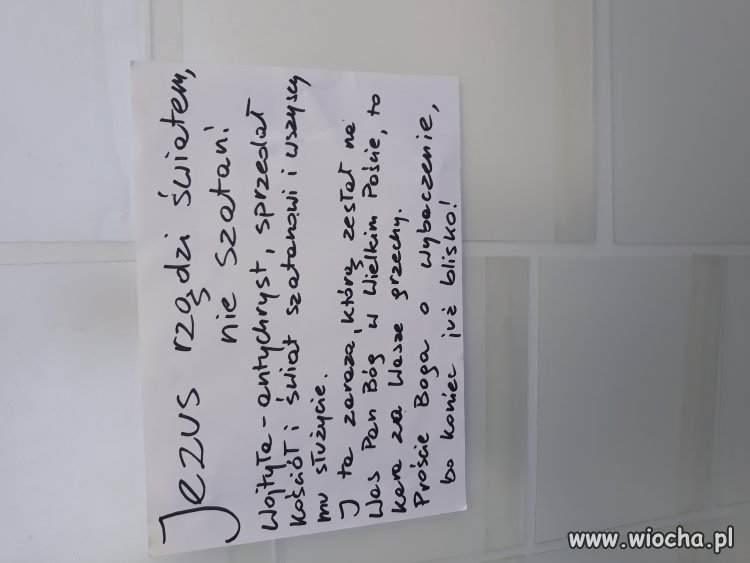 Jezus rządzi światem,
nie szatan!
Wojtyła - antychryst, sprzedał
Kościół i świat szatanowi i wszyscy
mu służycie.
I ta zaraza, którą zesłał na
Was Pan Bóg w Wielkim Poście, to
kara za Wasze grzechy.
Proście Boga o wybaczenie,
bo koniec już blisko!
www.wiocha.pl